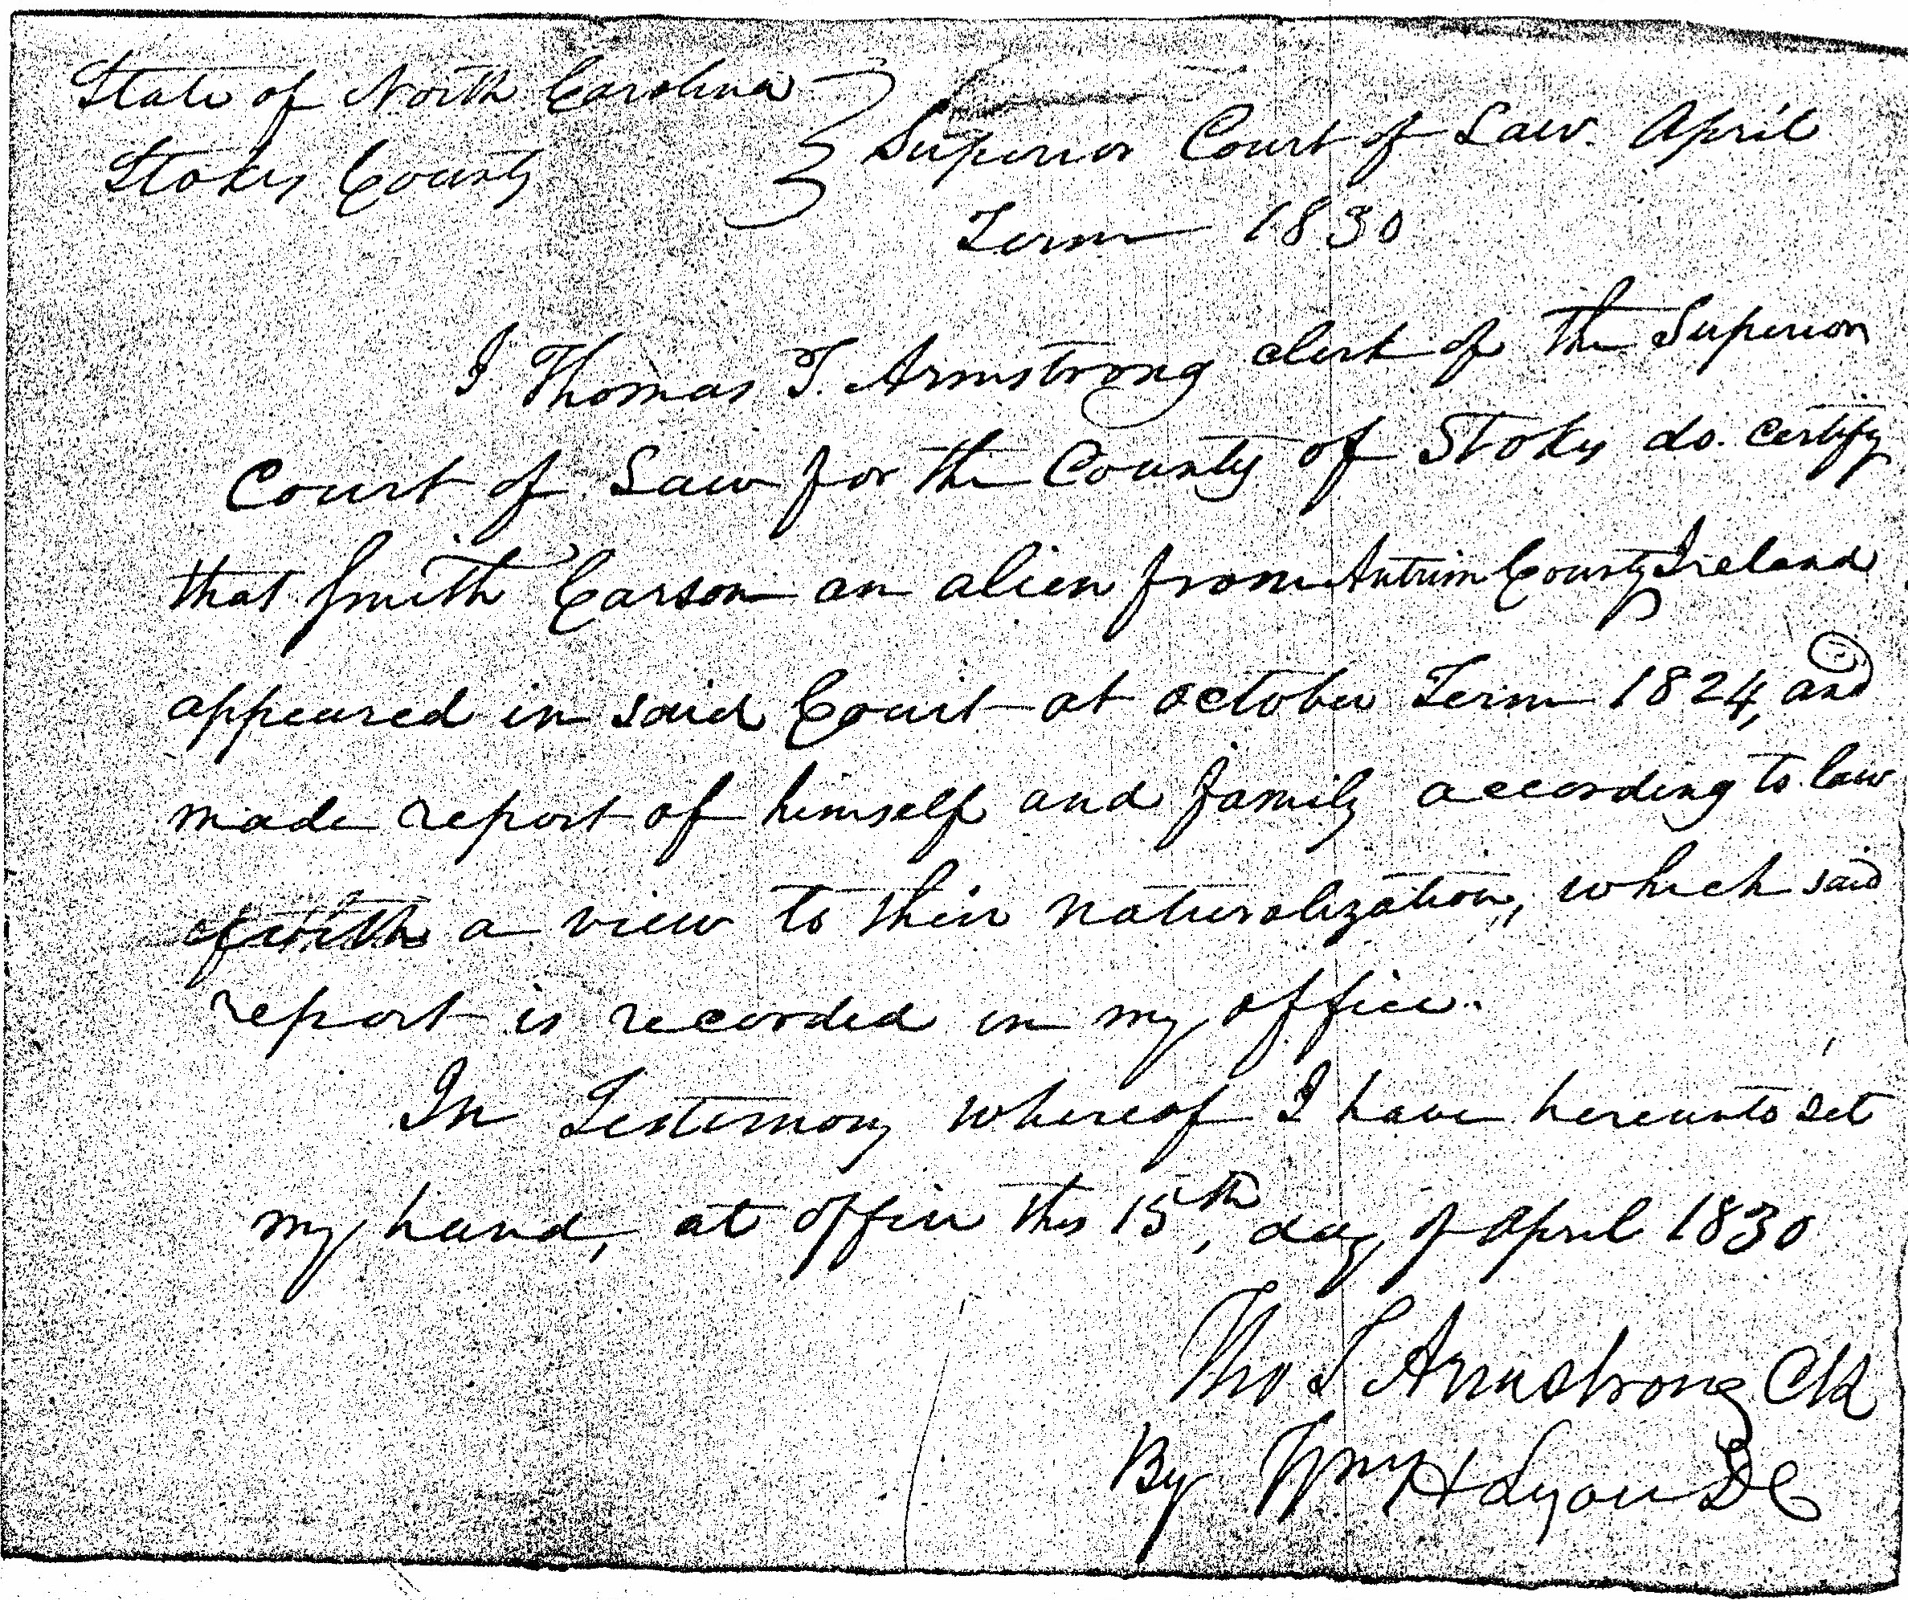 State of North Carolina
Stokes County
Superior Court of Law. April
Term 1830
I Thomas T. Armstrong clerk of the Superior
Court of Law for the County of Stokes do. certify
that Smith Carson an alien from Antrim County Ireland
appeared in said Court at october Term 1824, and
made report of himself and family according to law
with a view to their naturalization, which said
report is recorded in my office.
In Testimony whereof I have hereunto set
my hand, at office this 15th, day of April 1830
Tho T Armstrong Clk
By Wm H Lyon DC